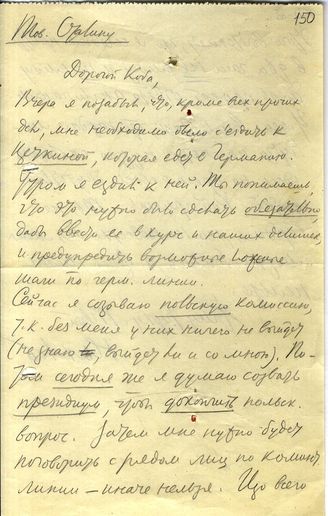 150
Тов. Сталину
Дорогой Коба,
Вчера я позабыл, что, кроме всех прочих
дел, мне необходимо было съездить к
Цеткиной, которая едет в Германию.
Утром я ездил к ней. Ты понимаешь,
что это нужно было сделать обязательно
дабы ввести ее в курс и наших делишек,
и предупредить возможные ложные
шаги по герм. линии.
Сейчас я созываю польскую комиссию,
т.к. без меня у них ничего не выйдет
(не знаю выйдет ли и со мною). По-
том сегодня же я думаю созвать
президиум, чтоб докончить польск.
вопрос. Затем мне нужно будет
поговорить с рядом лиц по коминт.
линии – иначе нельзя. Цо всего